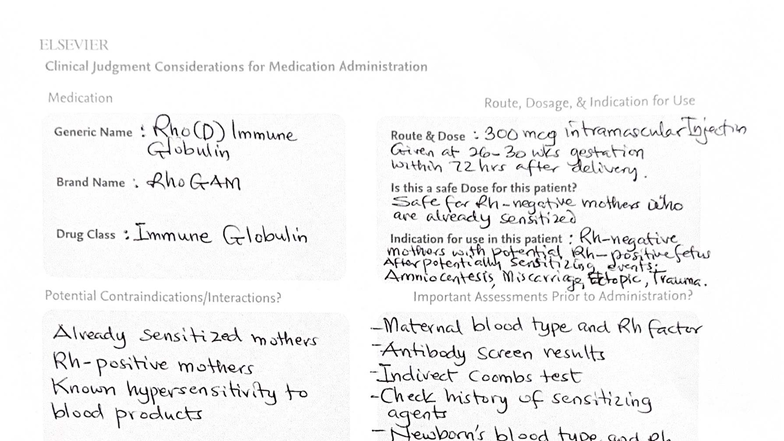 ELSEVIER
Clinical Judgment Considerations for Medication Administration
Medication
Generic Name : Rho(D) Immune
Globulin
Brand Name : RhoGAM
Drug Class : Immune Globulin
Route, Dosage, & Indication for Use
Route & Dose : 300 mcg intramuscular Injectin
Given at 26-30 wks gestation
within 72 hrs after delivery.
Is this a safe Dose for this patient?
Safe for Rh-negative mothers who
are already sensitized
Indication for use in this patient : Rh-negative
mothers with potential Rh-positive fetus
After potentially sensitizing events:
Amniocentesis, Miscarriage, Ectopic, Trauma.
Potential Contraindications/Interactions?
Already sensitized mothers
Rh-positive mothers
Known hypersensitivity to
blood products
Important Assessments Prior to Administration?
-Maternal blood type and Rh factor
-Antibody screen results
-Indirect Coombs test
-Check history of sensitizing
agents
-Newborn's blood type and Rh